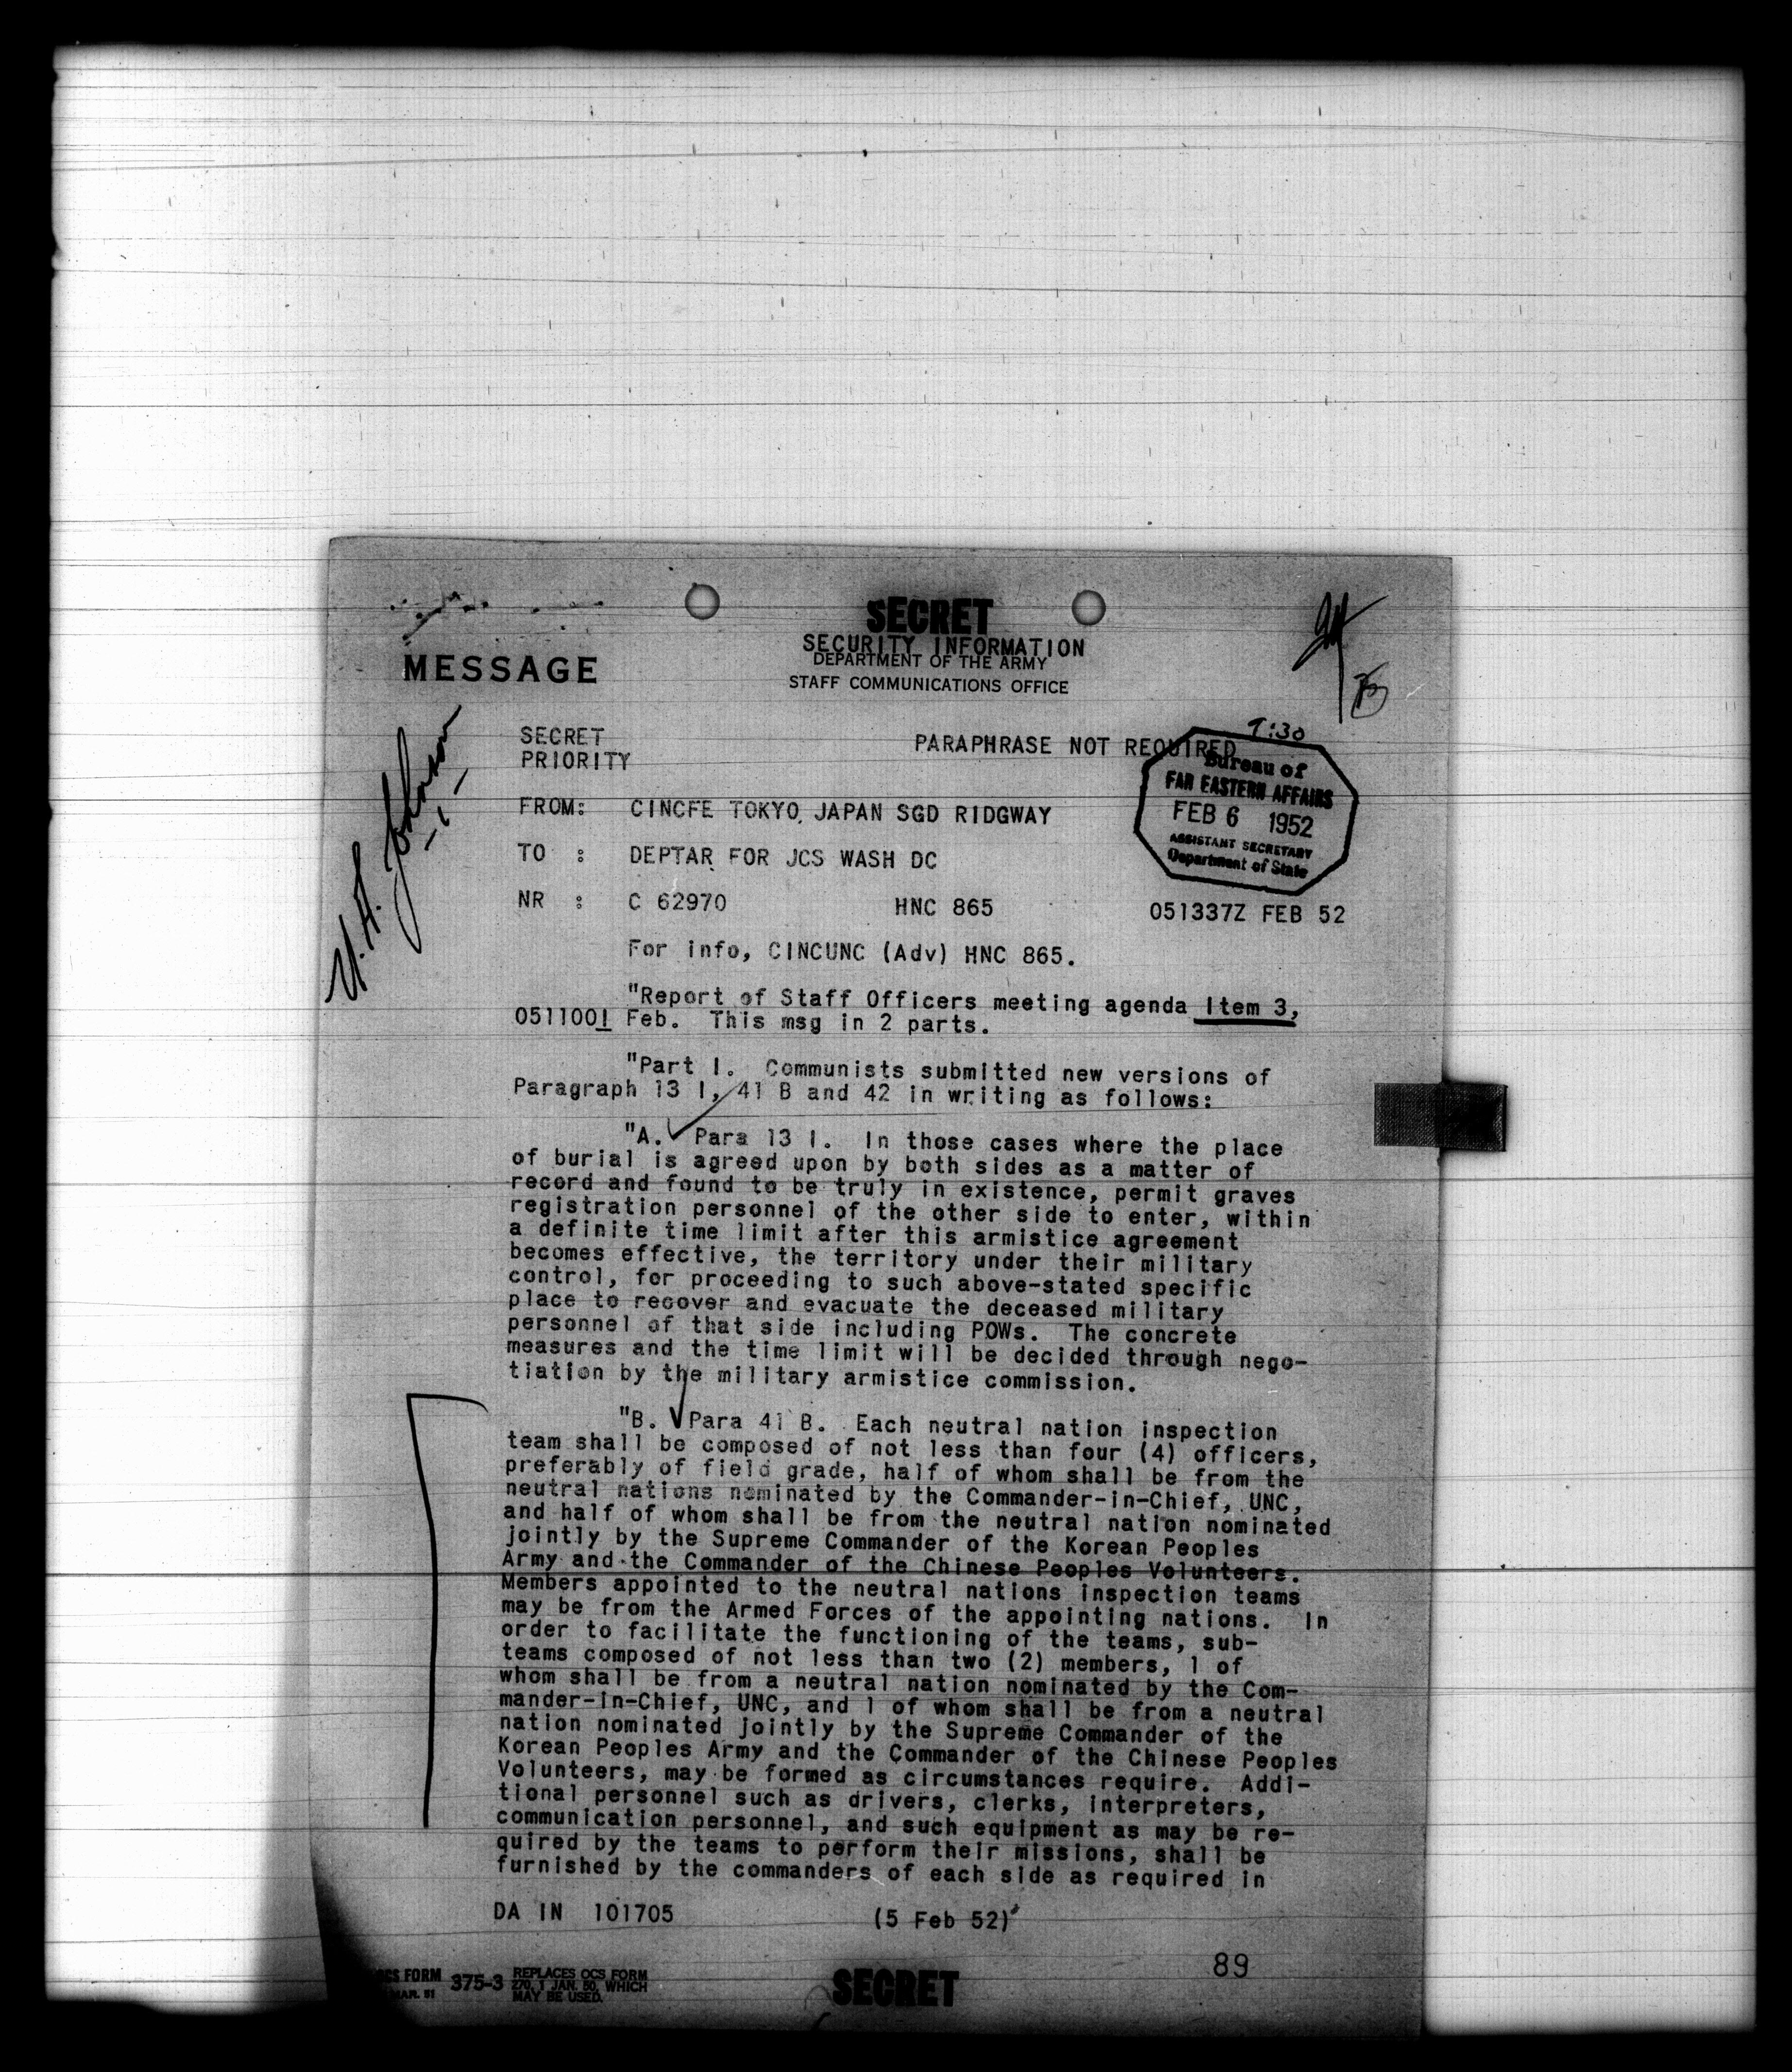 SECRET
SECURITY INFORMATION
DEPARTMENT OF THE ARMY
MESSAGE
STAFF COMMUNICATIONS OFFICE
U. A. Johnson
9:30
SECRET
PARAPHRASE NOT REQUIRED
PRIORITY
Bureau of
FAR EASTERN AFFAIRS
FEB 6 1952
ASSISTANT SECRETARY
Department of State
FROM: CINCFE TOKYO JAPAN SGD RIDGWAY
TO : DEPTAR FOR JCS WASH DC
NR : C 62970 HNC 865 051337Z FEB 52
For info, CINCUNC (Adv) HNC 865.
"Report of Staff Officers meeting agenda Item 3,
051100I Feb. This msg in 2 parts.
"Part I. Communists submitted new versions of
Paragraph 13 I, 41 B and 42 in writing as follows:
"A. Para 13 I. In those cases where the place
of burial is agreed upon by both sides as a matter of
record and found to be truly in existence, permit graves
registration personnel of the other side to enter, within
a definite time limit after this armistice agreement
becomes effective, the territory under their military
control, for proceeding to such above-stated specific
place to recover and evacuate the deceased military
personnel of that side including POWs. The concrete
measures and the time limit will be decided through nego-
tiation by the military armistice commission.
"B. Para 41 B. Each neutral nation inspection
team shall be composed of not less than four (4) officers,
preferably of field grade, half of whom shall be from the
neutral nations nominated by the Commander-in-Chief, UNC,
and half of whom shall be from the neutral nation nominated
jointly by the Supreme Commander of the Korean Peoples
Army and the Commander of the Chinese Peoples Volunteers.
Members appointed to the neutral nations inspection teams
may be from the Armed Forces of the appointing nations. In
order to facilitate the functioning of the teams, sub-
teams composed of not less than two (2) members, 1 of
whom shall be from a neutral nation nominated by the Com-
mander-in-Chief, UNC, and 1 of whom shall be from a neutral
nation nominated jointly by the Supreme Commander of the
Korean Peoples Army and the Commander of the Chinese Peoples
Volunteers, may be formed as circumstances require. Addi-
tional personnel such as drivers, clerks, interpreters,
communication personnel, and such equipment as may be re-
quired by the teams to perform their missions, shall be
furnished by the commanders of each side as required in
DA IN 101705 (5 Feb 52)
89
FORM 375-3 REPLACES OCS FORM
MAR. 51 270, 1 JAN. 50, WHICH
MAY BE USED.
SECRET